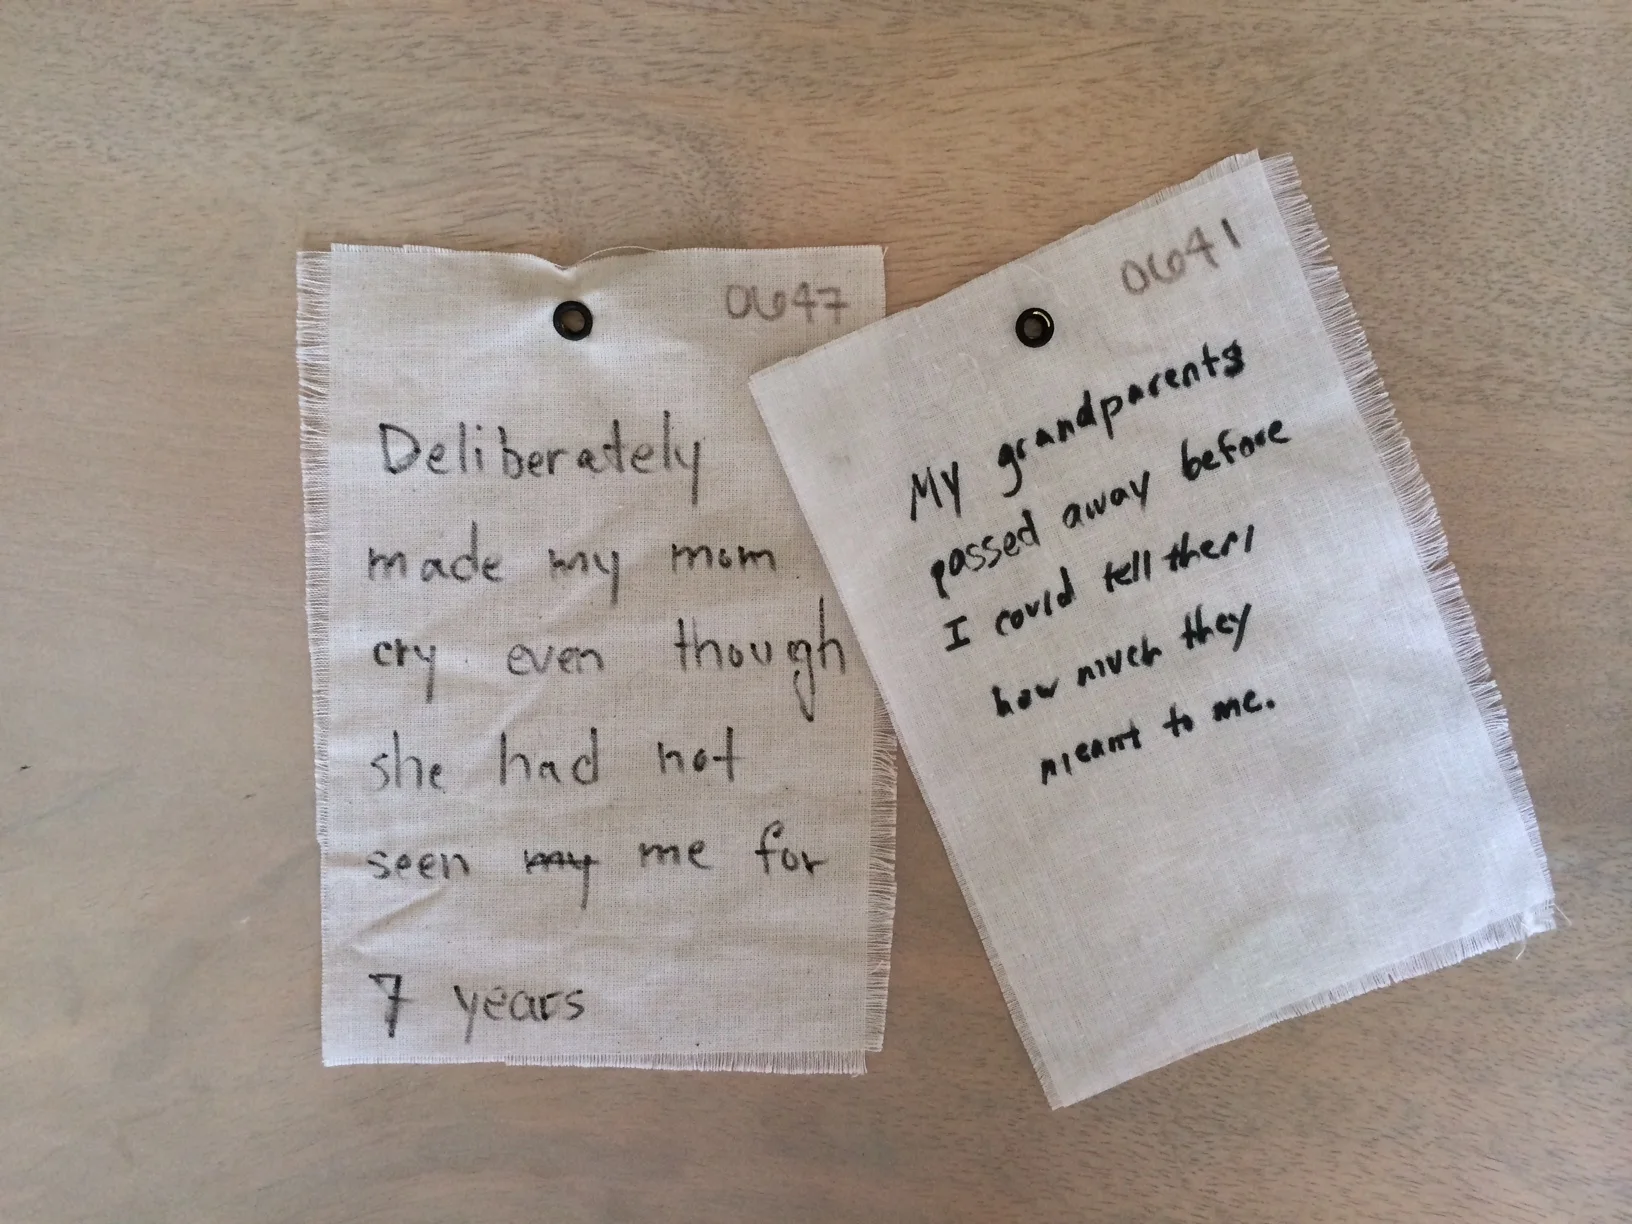 0647
Deliberately
made my mom
cry even though
she had not
seen my me for
7 years
0641
My grandparents
passed away before
I could tell them
how much they
meant to me.